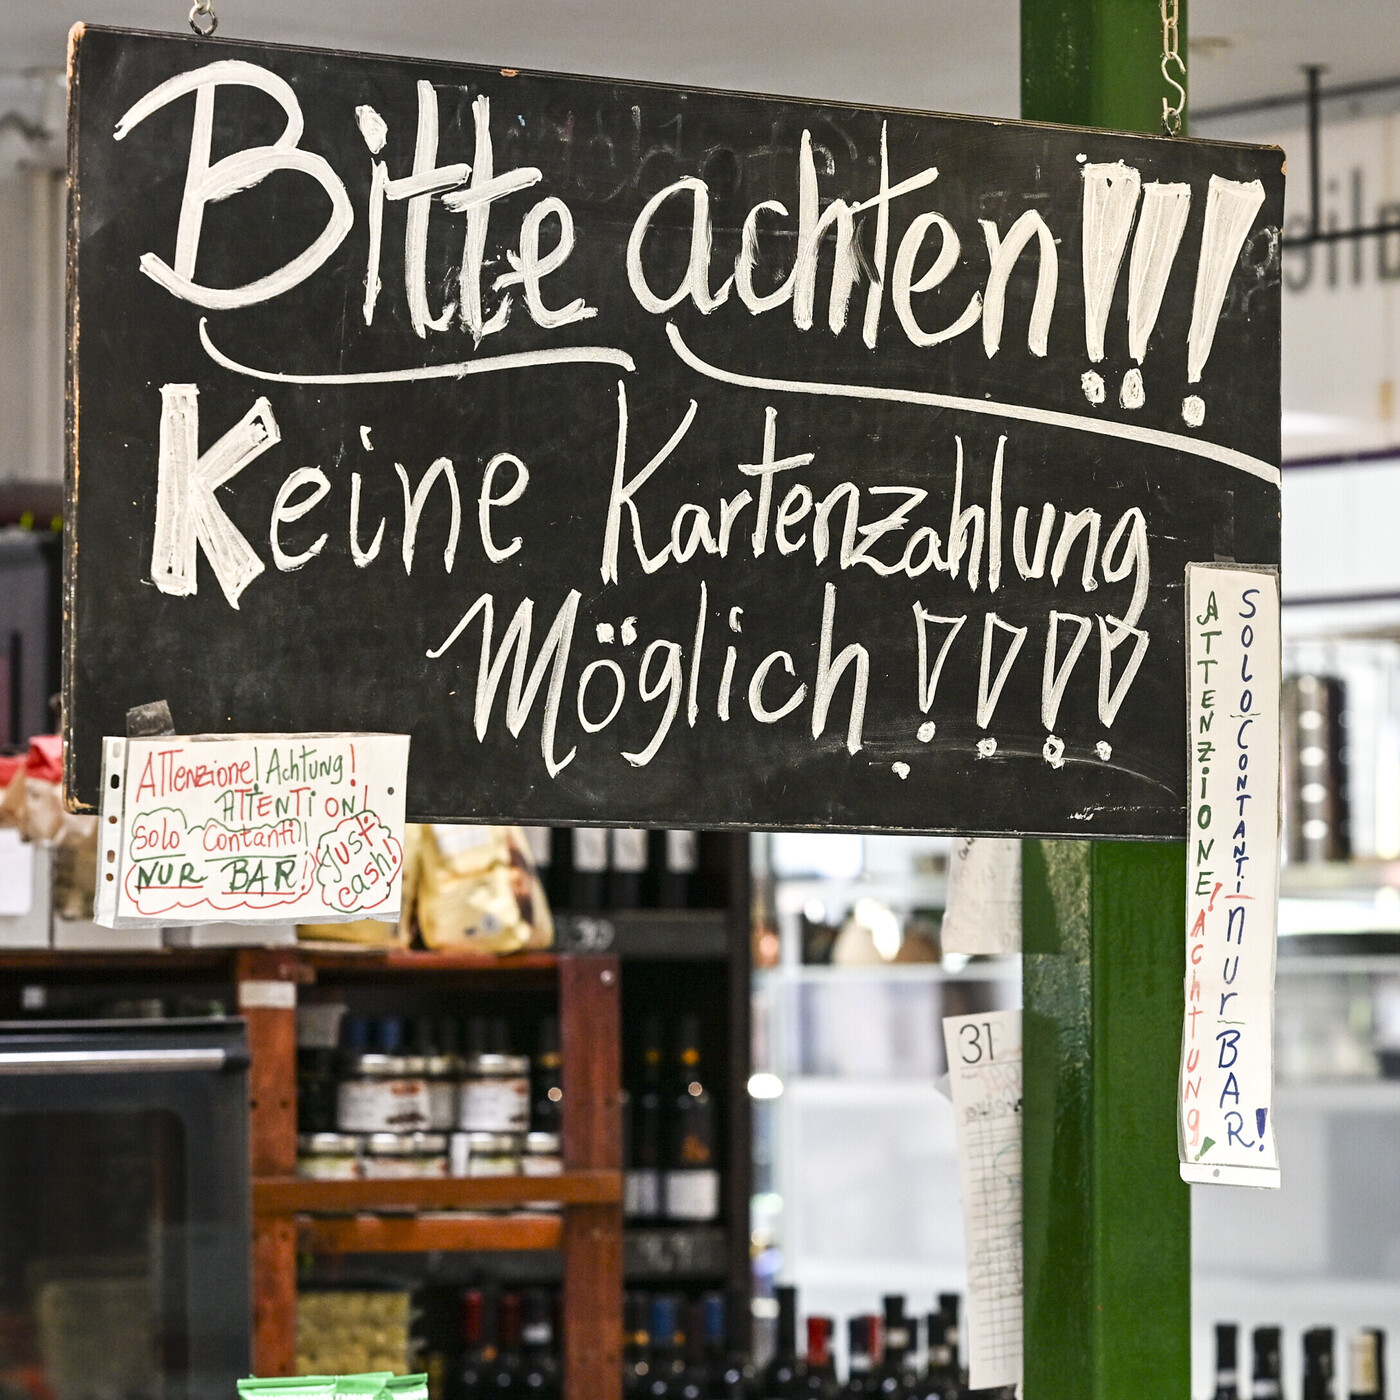 Bitte achten!!!
Keine Kartenzahlung
Möglich!!!!
Attenzione! Achtung!
ATTENTiON!
Solo Contanti!
NUR BAR!
Just
cash!
ATTENZiONE! AChTUNg!
SOLO CONTANTi nur BAR!
31